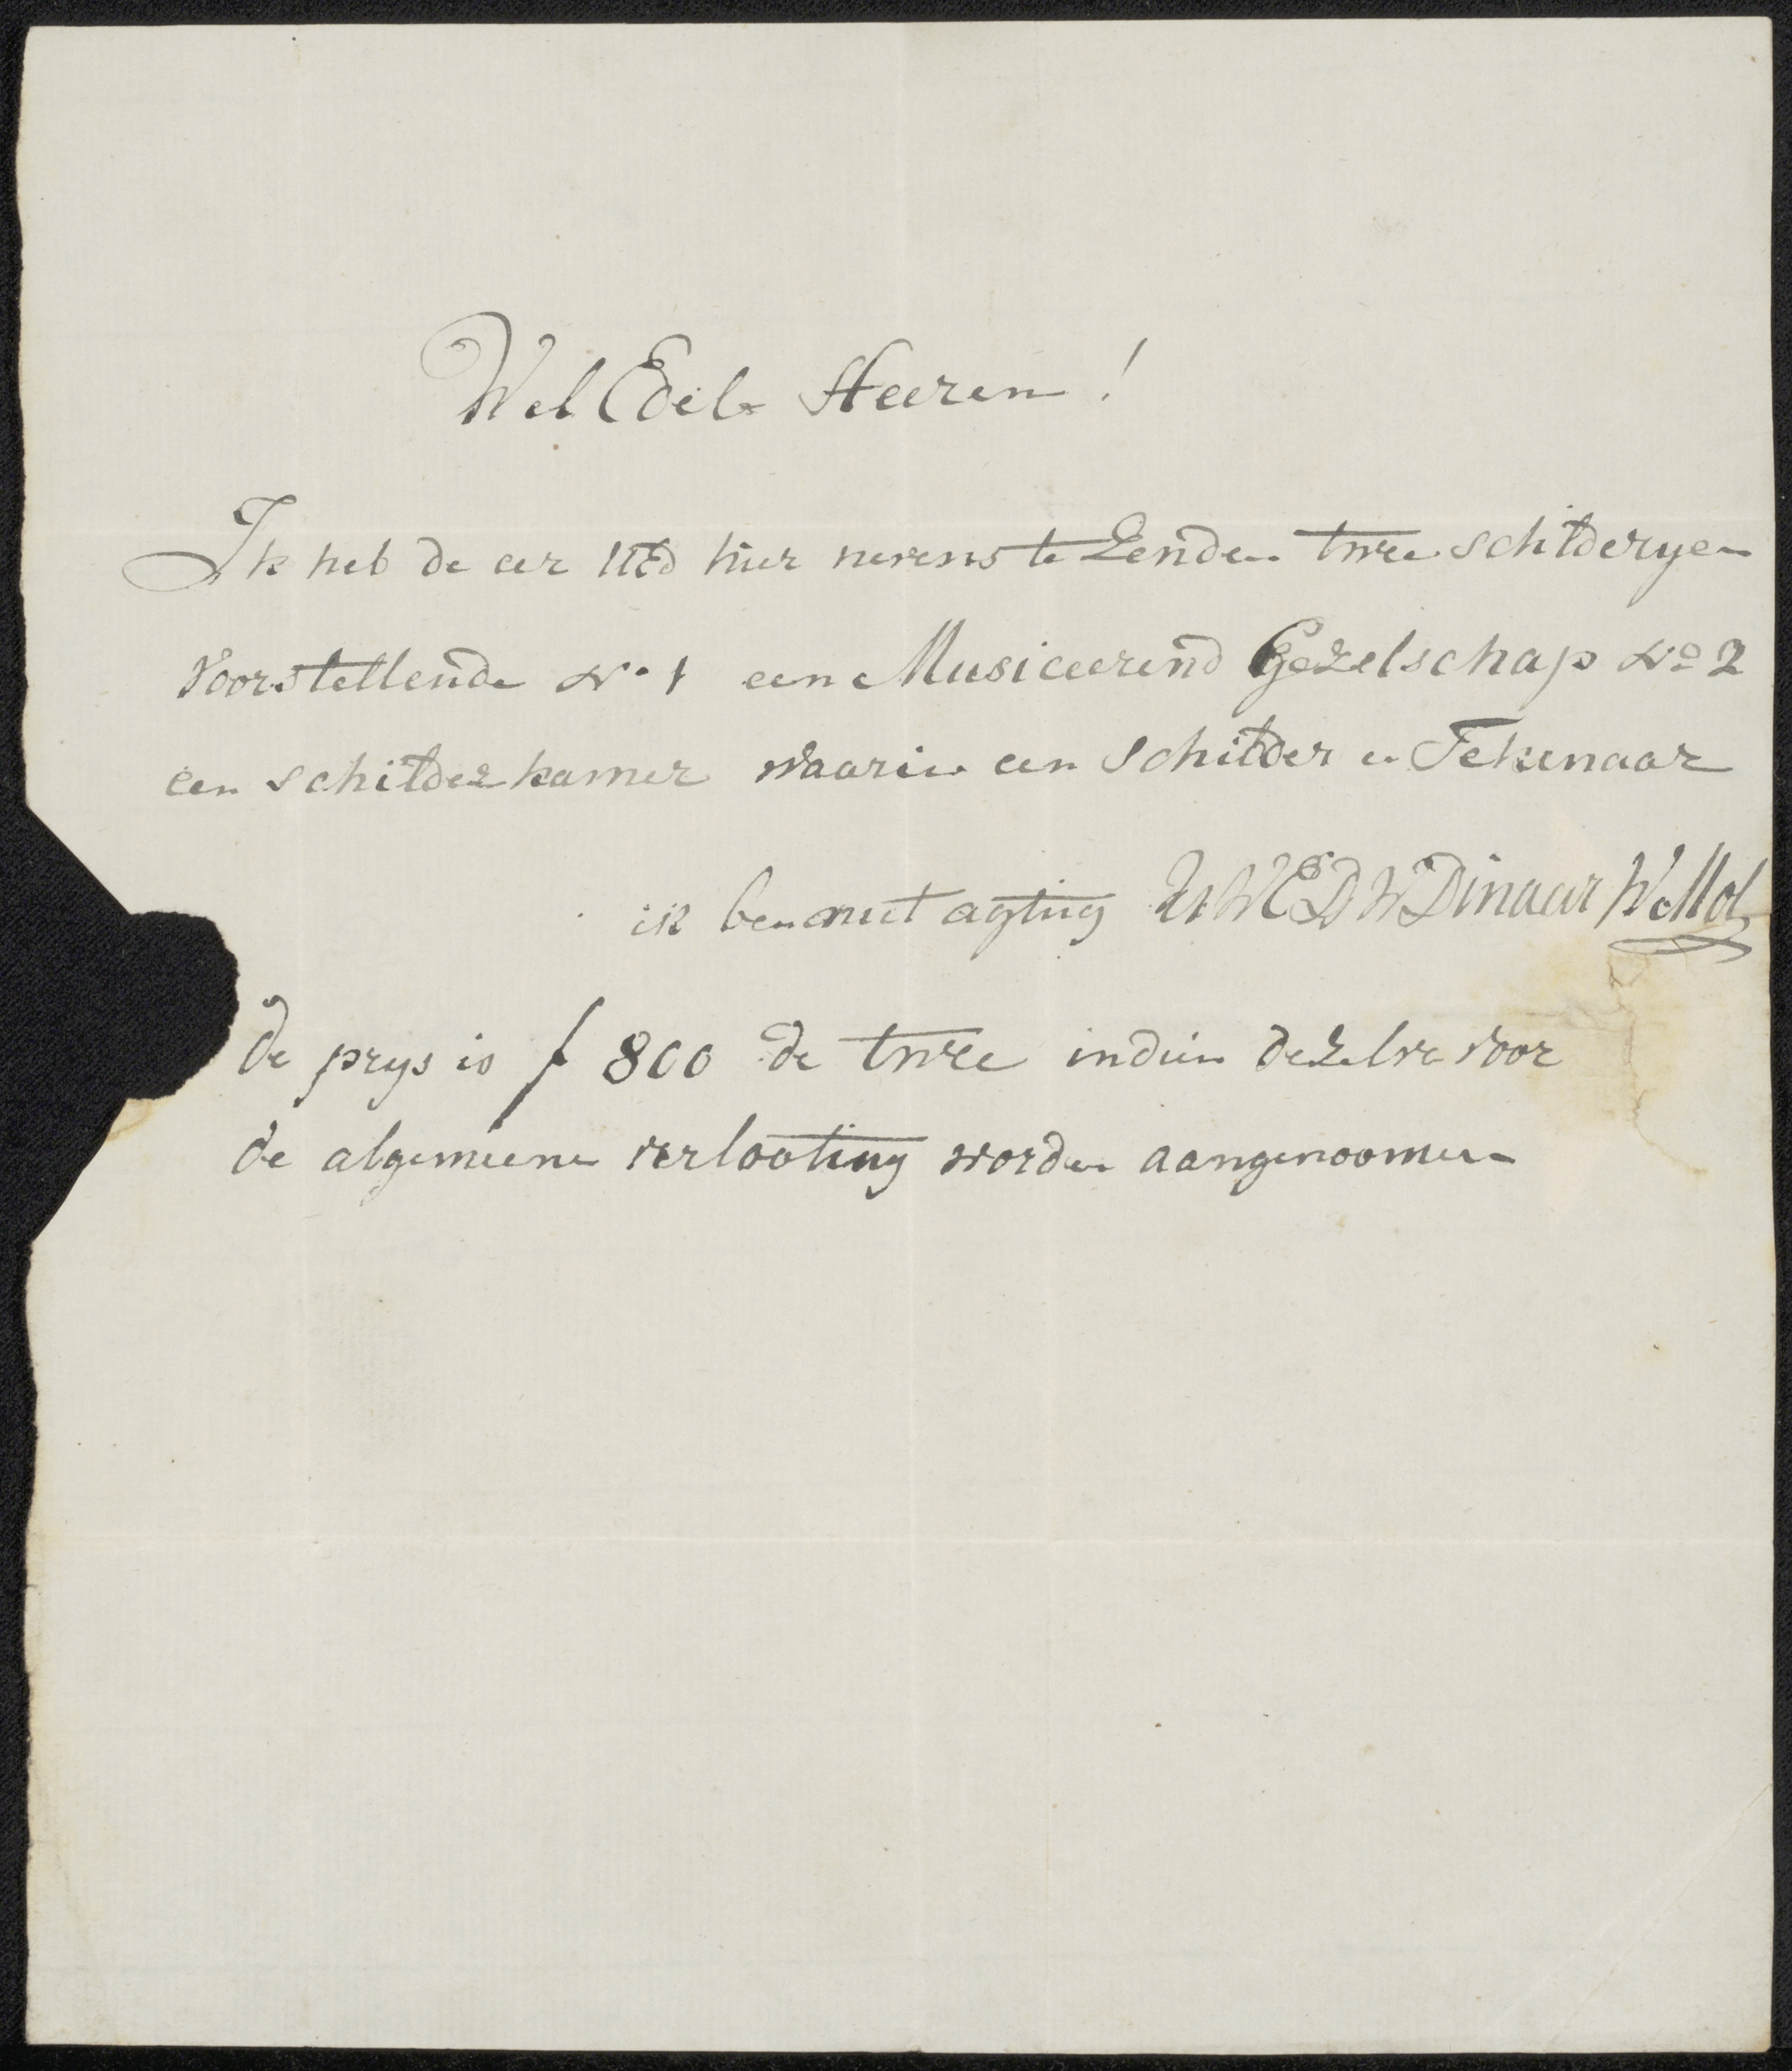 Wel Edele Heeren!
Ik heb de eer UEd hier nevens te Zenden twee schilderyen
Voorstellende No 1 een Musiceerend Gezelschap No 2
een schilderkamer waarin een schilder en Tekenaar
ik ben met agting UWEDWDinaar W Mol
de prys is f 800 de twee indien dezelve voor
de algemeene verlooting worden aangenoomen